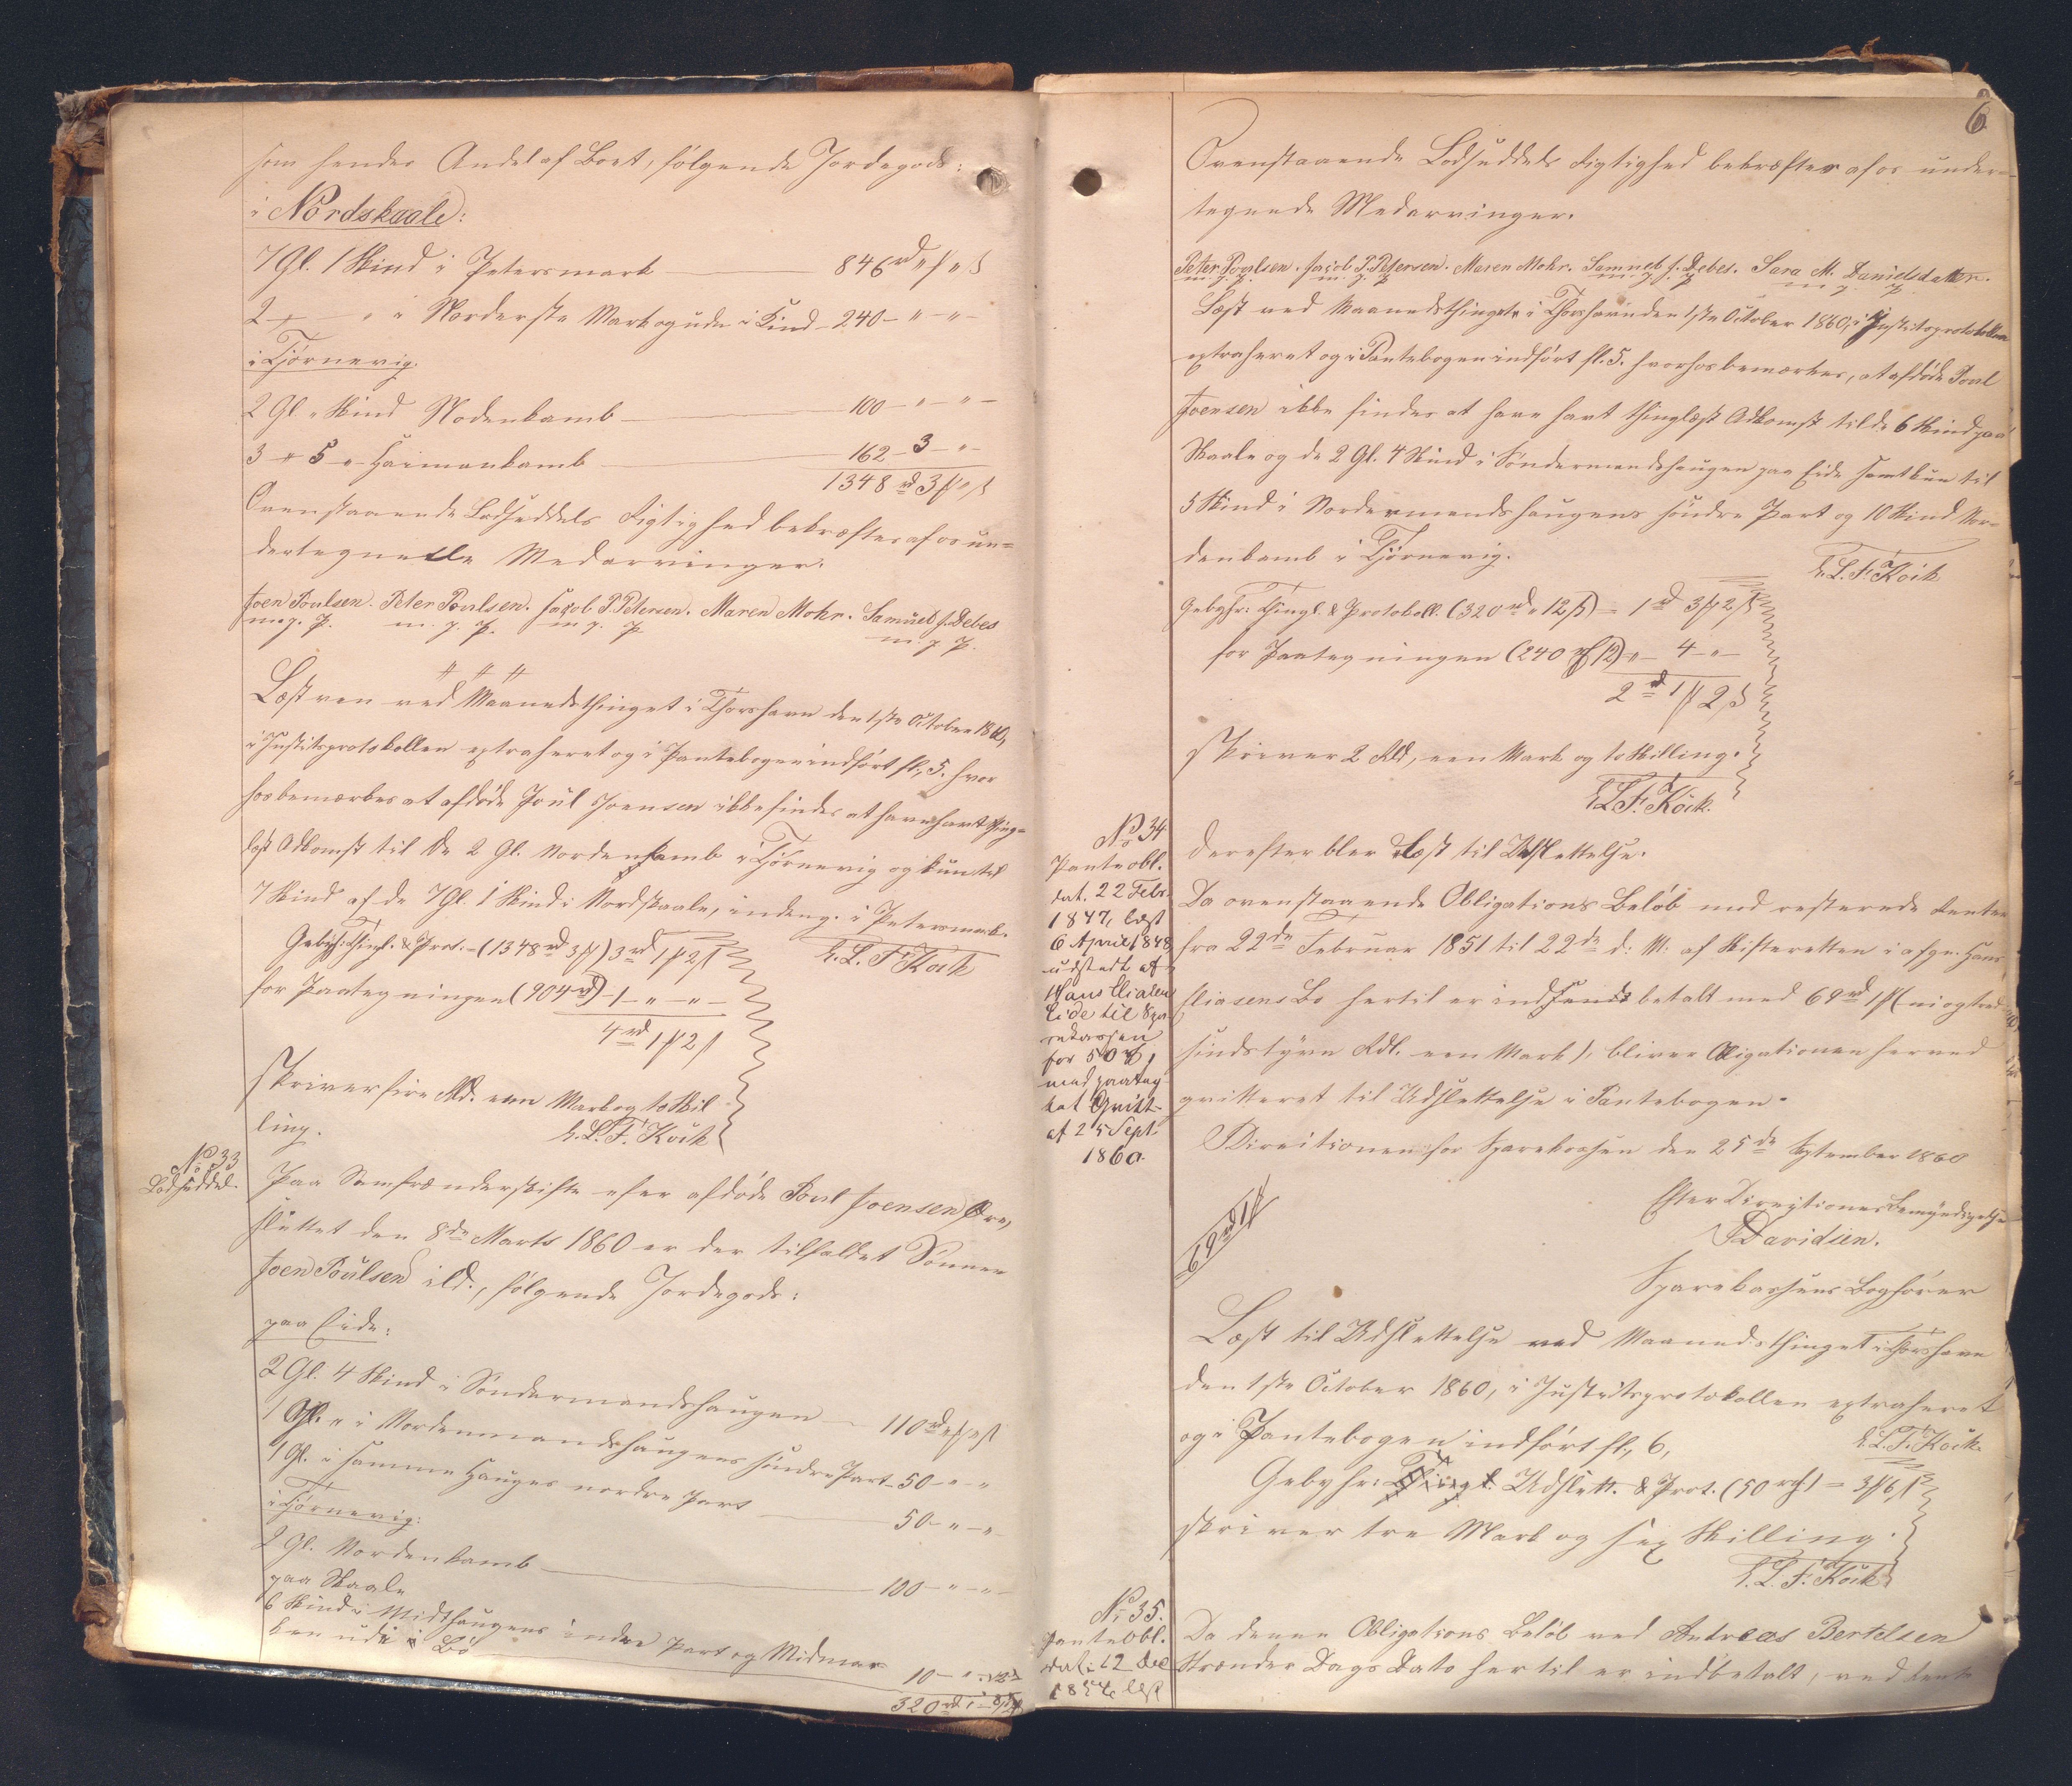 som hendes Andel af Boet, følgende Jordegods:
i Nordskaale:
7 Gl. 1 Skind i Petersmark — 846 rd " ß " ß
2 — " — " i Norderste Mark og ude i Kind — 240 — " — " —
i Tjørnevig.
2 Gl. " Skind Nodenkamb — 100 — " — " —
3 — " 5 — " — Heimankamb — 162 — 3 — " —
1348 rd 3 ß " ß
Ovenstaaende Lodseddels Rigtighed bekræftes af os un-
dertegnede Medarvinger.
Joen Poulsen. Peter Poulsen. Jacob P. Petersen. Maren Mohr. Samuel J. Debes
m. p. m. p. m. p. m. p.
Læst ved Maanedsthinget i Thorshavn den 1ste October 1860,
i Justitsprotokollen extraheret og i Pantebogen indført fl. 5. hvor
hos bemærkes at afdøde Poul Joensen ikke findes at have havt thing-
læst Adkomst til de 2 Gl. Nordenkamb i Tjørnevig og kun til
7 Skind af de 7 Gl. 1 Skind i Nordskaale, indeng. i Petersmark.
Gebyhr: Thingl. & Prot. — (1348 rd 3 ß) 3 rd 1 ß 2 ß
H. L. F. Kock
for Paategningen (904 rd) — 1 — " — " —
4 rd 1 ß 2 ß
skriver fire Rd. een Mark og to Skil
ling.
H. L. F. Kock
No 33
Lodseddel.
Paa Samfrændeskifte efter afdøde Poul Joensen Øre,
sluttet den 8de Marts 1860 er der tilfaldet Sønnen
Joen Poulsen ibd., følgende Jordegods:
paa Eide:
2 Gl. 4 Skind i Søndermandshaugen — 110 rd " ß " ß
1 Gl. " i Nordenmandshaugens søndre Part — 50 — " — "
1 Gl. i samme Hauges nordre Part — 50 — " — "
i Tjørnevig:
2 Gl. Nordenkamb — 100 — " — " —
paa Skaale
6 Skind i Midthaugens indre Part og Midmar
ken ude i Bø — 10 — " — 12
320 rd
6
Ovenstaaende Lodseddels Rigtighed bekræftes af os under-
tegnede Medarvinger.
Peter Poulsen. Jacob P. Petersen. Maren Mohr. Samuel J. Debes. Sara M. Danielsdatter.
m. p. m. p. m. p. m. p.
Læst ved Maanedsthinget i Thorshavn den 1ste October 1860, i Justitsprotokollen
extraheret og i Pantebogen indført fl. 5. hvorhos bemærkes, at afdøde Poul
Joensen ikke findes at have havt thinglæst Adkomst til de 6 Skind paa
Skaale og de 2 Gl. 4 Skind i Søndermandshaugen paa Eide samt kun til
5 Skind i Nordenmandshaugens søndre Part og 10 Skind Nor-
denkamb i Tjørnevig.
H. L. F. Kock
Gebyhr: Thingl. & Protokoll. (320 rd " 12 ß) = 1 rd 3 ß 2 ß
for Paategningen (240 rd 12) " — 4 — " —
2 rd 1 ß 2 ß
skriver 2 Rd, een Mark og to Skilling.
H. L. F. Kock.
No 34
Panteobl.
dat. 22 Febr.
1847, læst
6 April 1848
udstedt af
Hans Eliasen
Eide til Spa-
rekassen
for 50 rd,
med paateg-
net Qvitt.
af 25 Sept.
1860.
Derefter blev læst til Udslettelse.
Da ovenstaaende Obligations Beløb med resterende Renter
fra 22de Februar 1851 til 22de d: M: af Skifteretten i afgn. Hans
Eliasens Bo hertil er indsendt betalt med 69 rd 1 ß (ni og tred-
sindstyve Rdl. een Mark), bliver Obligationen herved
qvitteret til Udslettelse i Pantebogen.
Direktionen for Sparekassen den 25de September 1860
Efter Direktionens Bemyndigelse
Davidsen.
69 rd 1 ß
Sparekassens Bogfører
Læst til Udslettelse ved Maanedsthinget i Thorshavn
den 1ste October 1860, i Justitsprotokollen extraheret
og i Pantebogen indført fl. 6,
H. L. F. Kock.
Gebyhr: Thingl. Udslett. & Prot. (50 rd) = 3 ß 6 ß
skriver tre Mark og sex Skilling.
H. L. F. Kock
No 35.
Panteobl.
dat. 12 Dec
læst
Da denne Obligations Beløb ved Andreas Bertelsen
Strænder Dags Dato hertil er indbetalt, ved